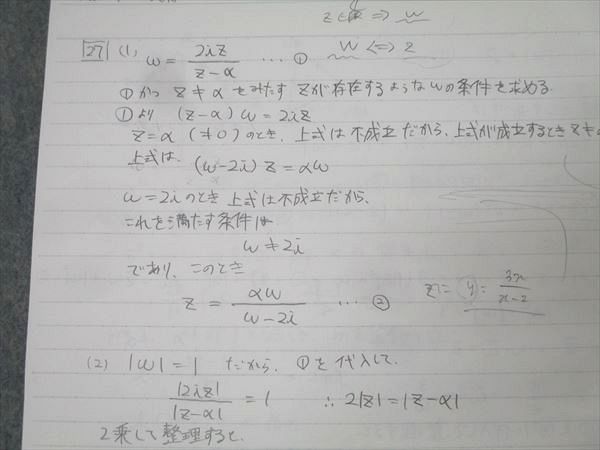 ⇒ w
27 (1) w = 2iz / (z-α) … ① w ⇔ z
①かつ z≠α をみたす zが存在するようなwの条件を求める.
①より (z-α)w = 2iz
z=α (≠0)のとき、上式は不成立だから、上式が成立するとき z≠
上式は、 (w-2i)z = αw
w=2iのとき上式は不成立だから、
これを満たす条件は
w≠2i
であり、このとき
z = αw / (w-2i) … ②
y = 3x / (x-2)
(2) |w|=1 だから、①を代入して、
|2iz| / |z-α| = 1 ∴ 2|z|=|z-α|
2乗して整理すると、